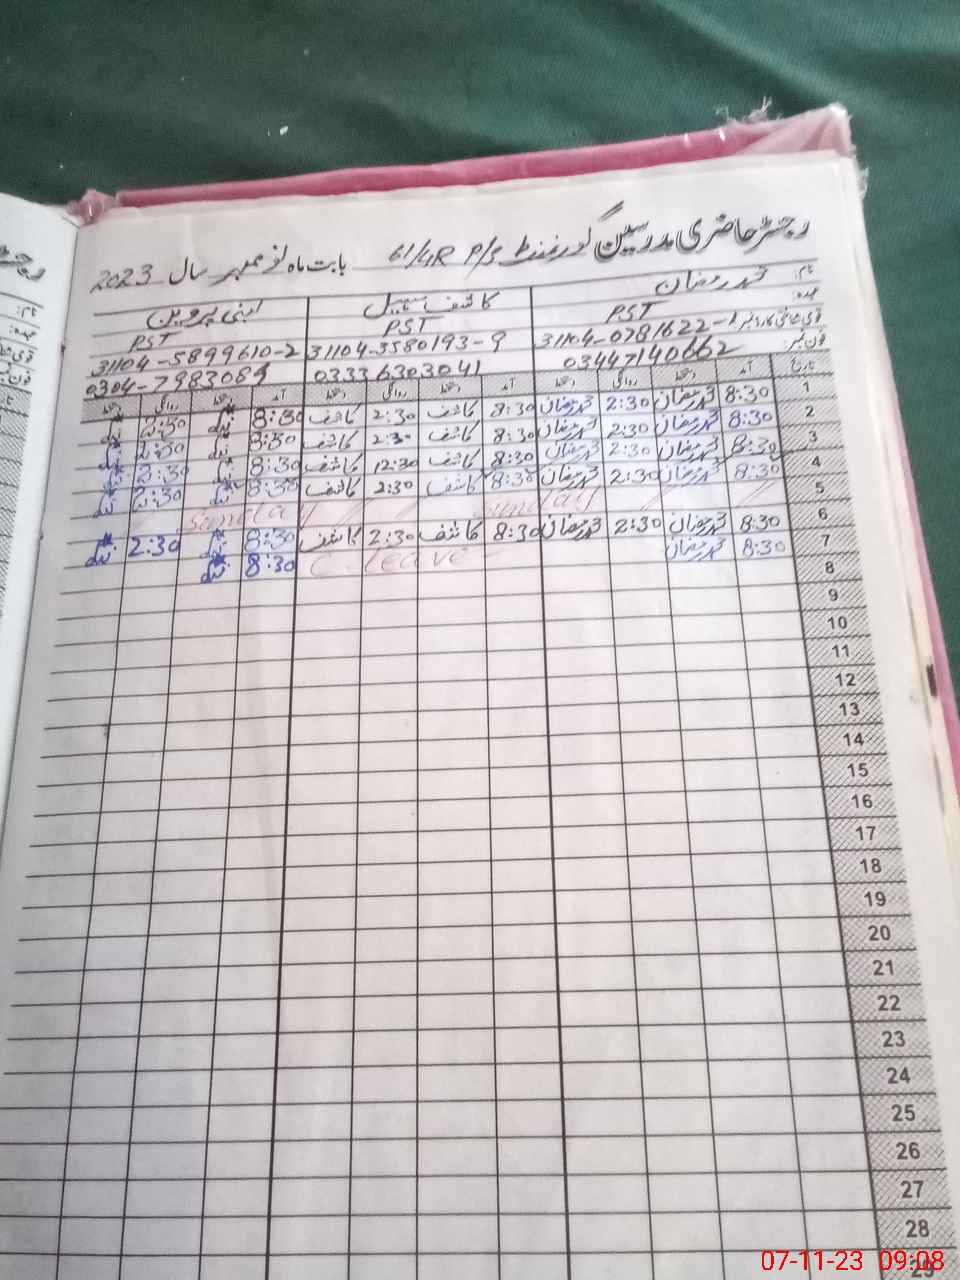 رجسٹر حاضری مدرسین گورنمنٹ 61/4R P/S بابت ماہ نومبر سال 2023
نام: محمد رمضان کاشف سہیل لبنیٰ پروین
عہدہ: PST PST PST
قومی شناختی کارڈ نمبر 31104-0781622-1 31104-3580193-9 31104-5899610-2
فون نمبر: 03447140662 03336303041 0304-7983089
تاریخ آمد دستخط روانگی دستخط آمد دستخط روانگی دستخط آمد دستخط روانگی دستخط
1 8:30 محمد رمضان 2:30 محمد رمضان 8:30 کاشف 2:30 کاشف 8:30 2:30
2 8:30 محمد رمضان 2:30 محمد رمضان 8:30 کاشف 2:30 کاشف 8:30 2:30
3 8:30 محمد رمضان 2:30 محمد رمضان 8:30 کاشف 12:30 کاشف 8:30 2:30
4 8:30 محمد رمضان 2:30 محمد رمضان 8:30 کاشف 2:30 کاشف 8:30 2:30
5 Sunday Sunday
6 8:30 محمد رمضان 2:30 محمد رمضان 8:30 کاشف 2:30 کاشف 8:30 2:30
7 8:30 محمد رمضان C. Leave 8:30
8
9
10
11
12
13
14
15
16
17
18
19
20
21
22
23
24
25
26
27
28
29
07-11-23 09:08